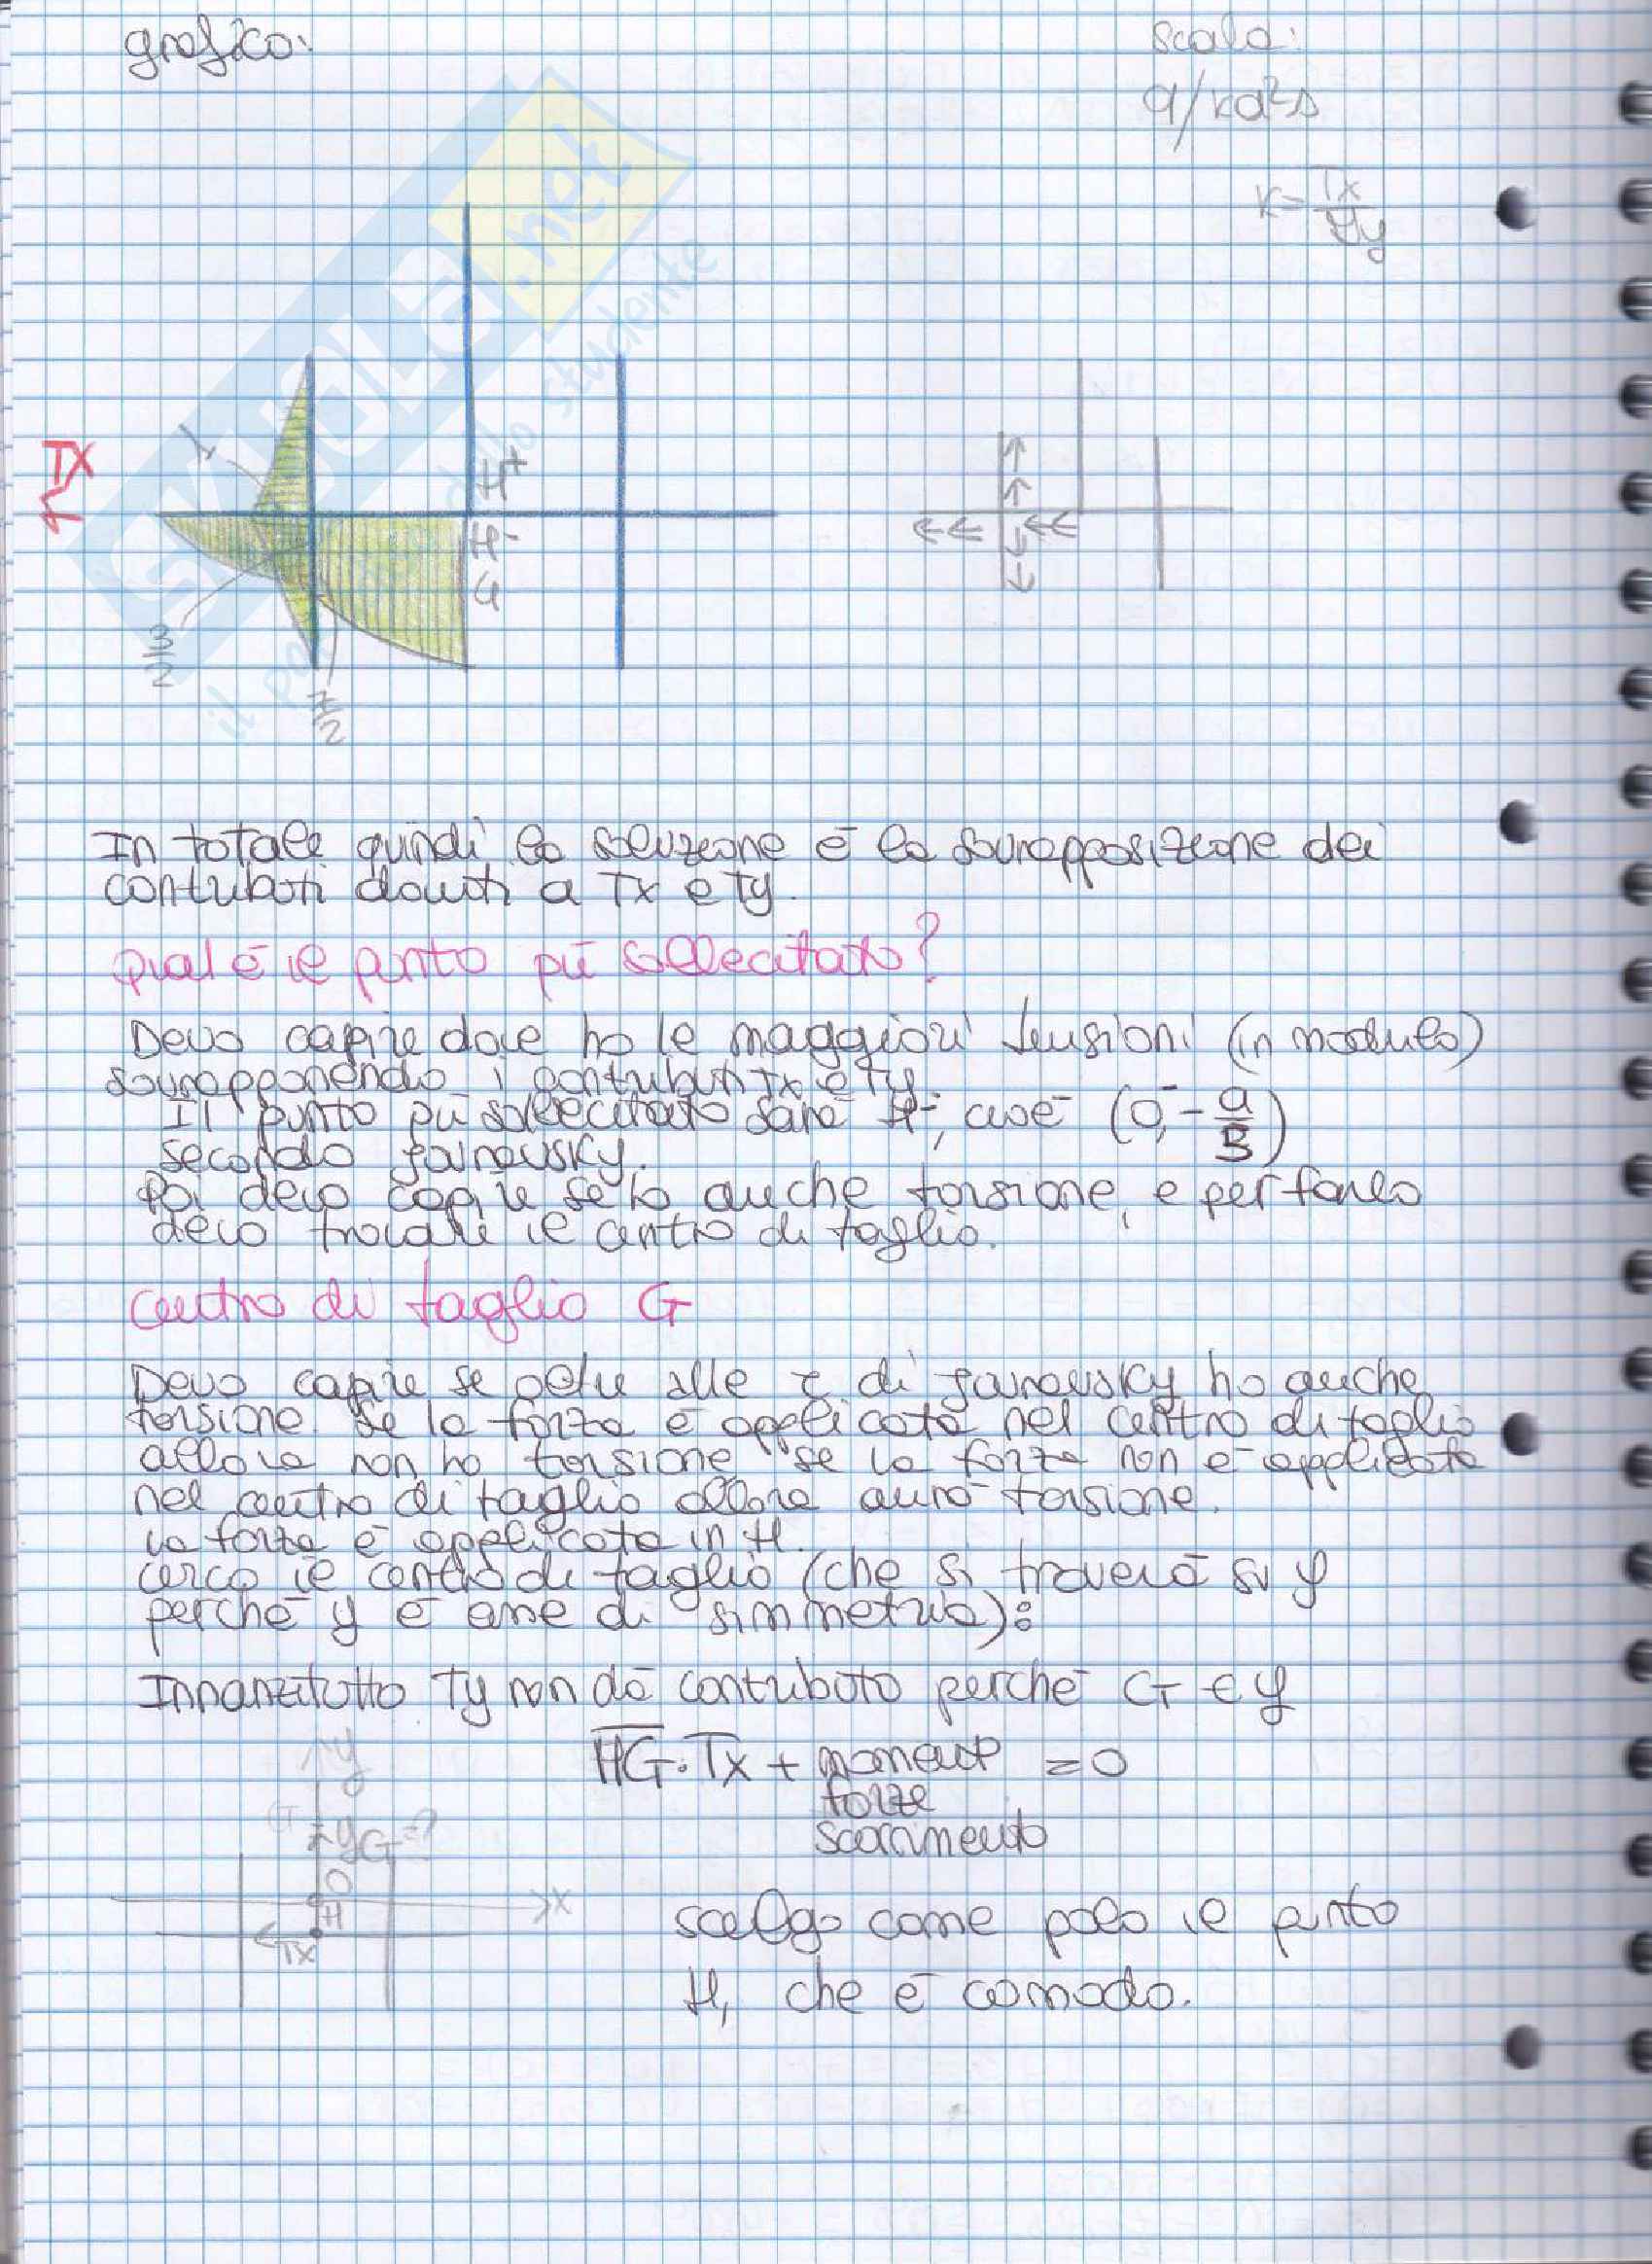 grafico:
scala:
a/ka²s
K = Tx/Jy
Tx
1
H⁺
H⁻
4
3/2
7/2
SKUOLA.net
il portale dello studente
In totale quindi la soluzione è la sovrapposizione dei
contributi dovuti a Tx e Ty.
Qual è il punto più sollecitato?
Devo capire dove ho le maggiori tensioni (in modulo)
sovrapponendo i contributi Tx e Ty.
Il punto più sollecitato sarà H⁻, cioè (0⁻, -a/3)
secondo Jourawsky.
Poi devo capire se ho anche torsione, e per farlo
devo trovare il centro di taglio.
Centro di taglio G
Devo capire se oltre alle τ di Jourawsky ho anche
torsione. Se la forza è applicata nel centro di taglio
allora non ho torsione, se la forza non è applicata
nel centro di taglio allora avrò torsione.
La forza è applicata in H.
Cerco il centro di taglio (che si troverà su y
perché y è asse di simmetria):
Innanzitutto Ty non dà contributo perché G ∈ y
HG · Tx + momento = 0
forze
scorrimento
y
G
yG = ?
O
x
H
Tx
scelgo come polo il punto
H, che è comodo.